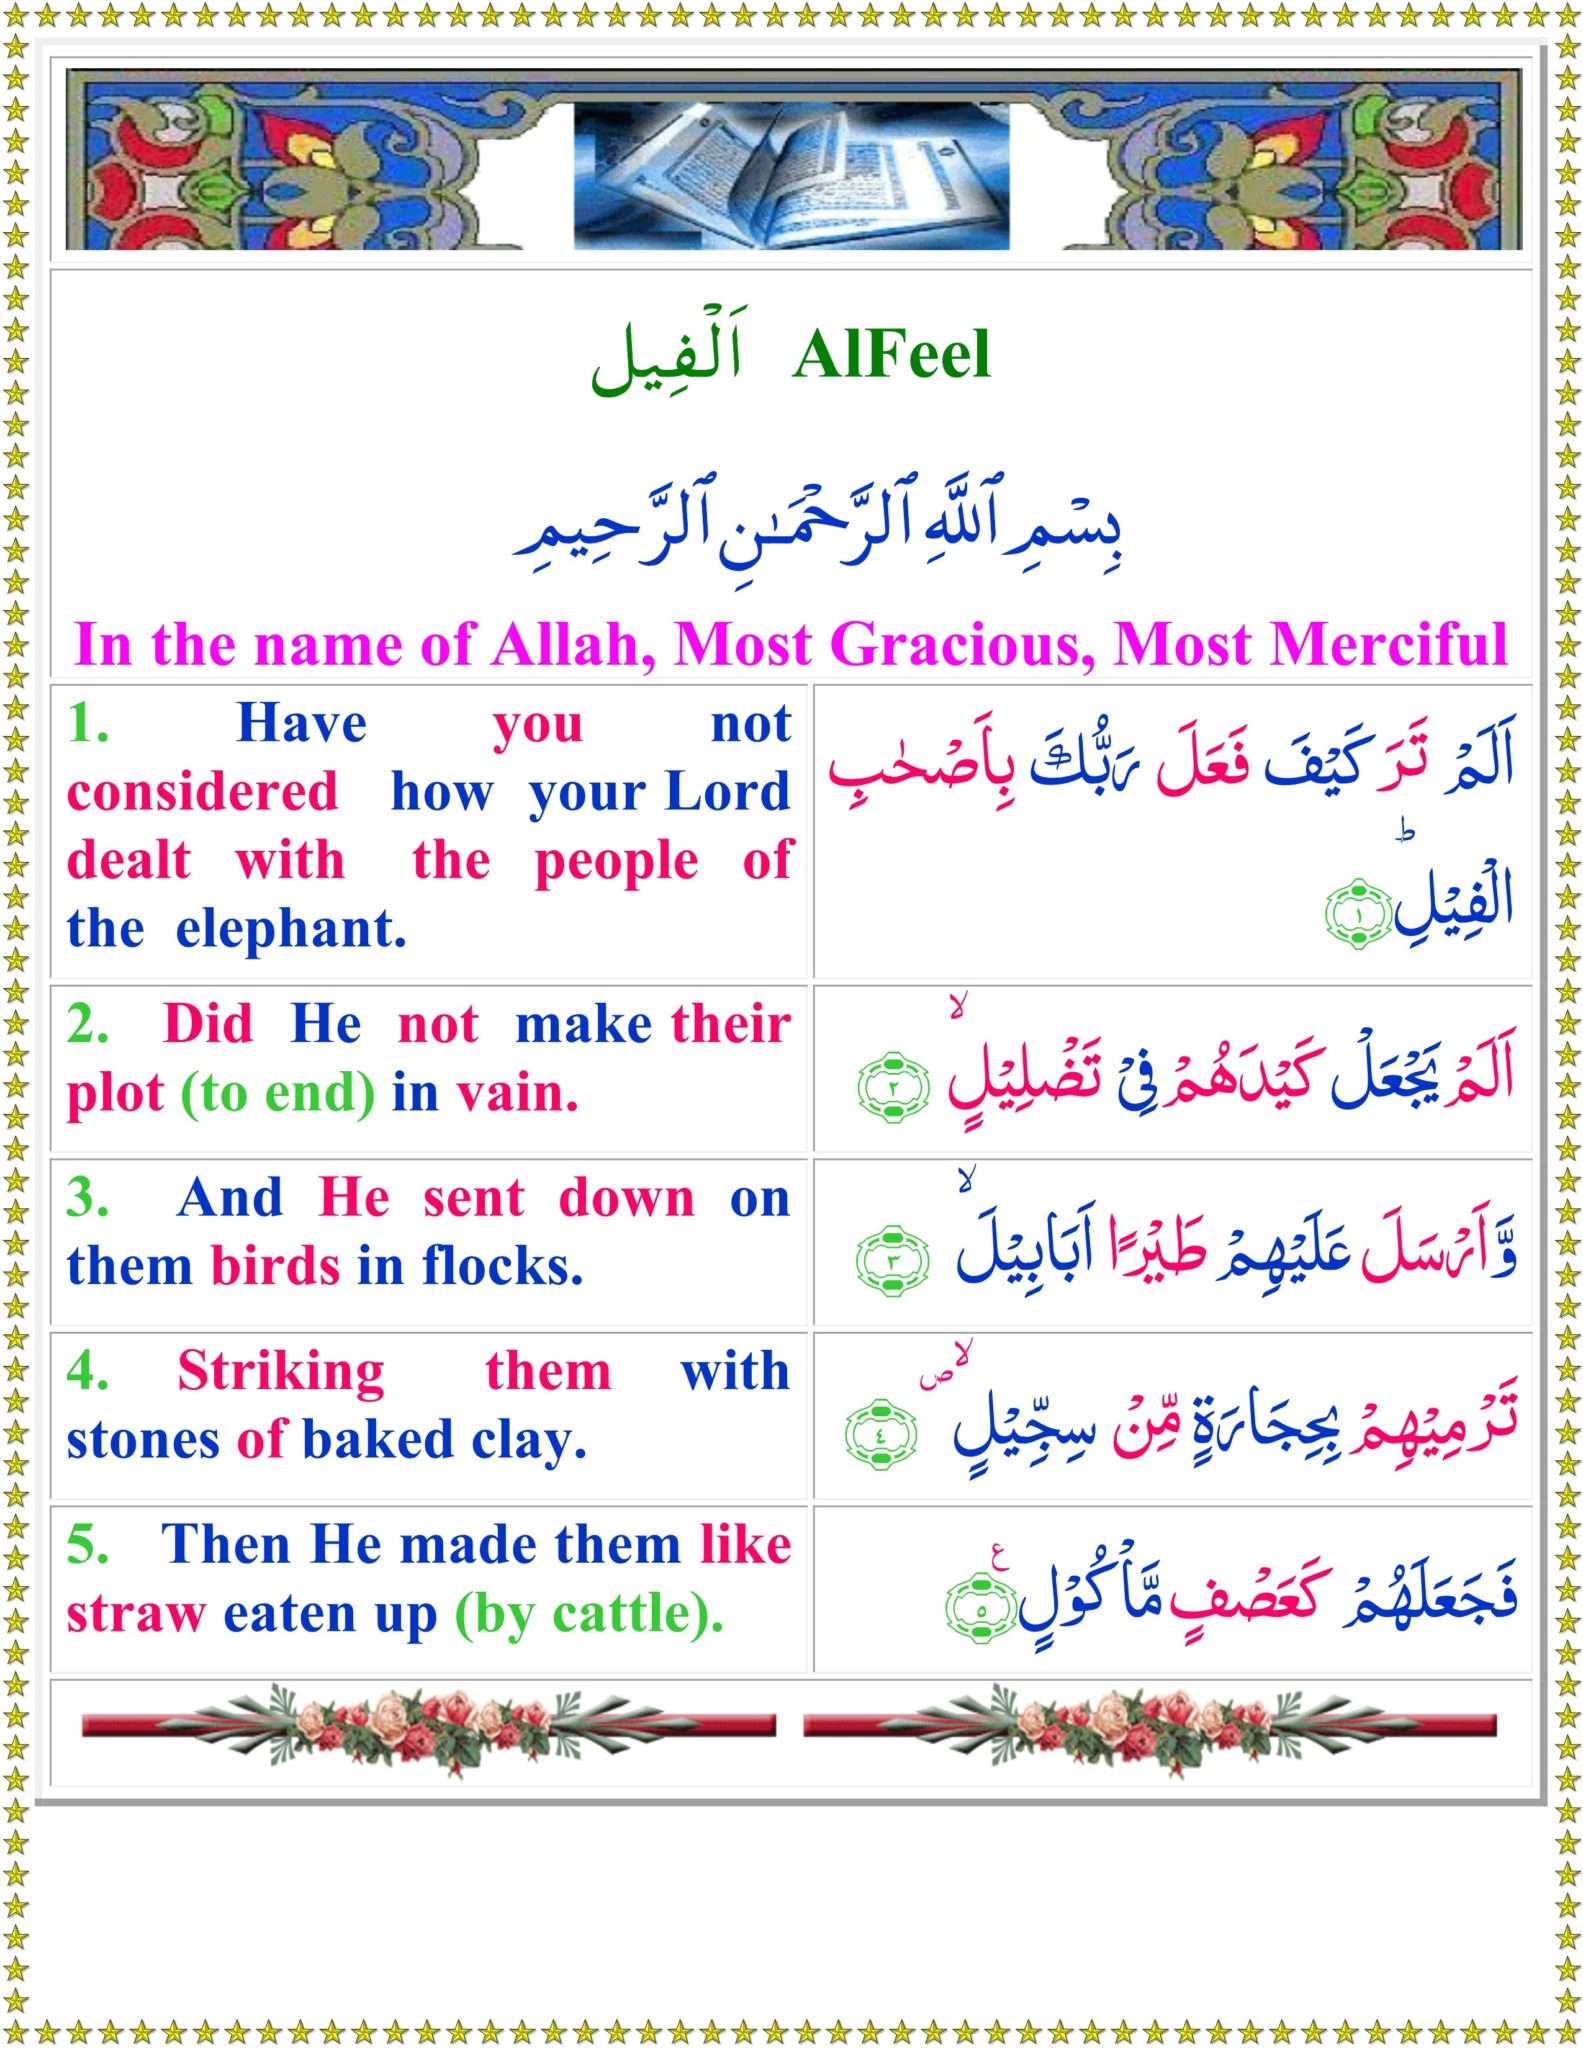 اَلْفِيل AlFeel
بِسْمِ ٱللَّهِ ٱلرَّحْمَـٰنِ ٱلرَّحِيمِ
In the name of Allah, Most Gracious, Most Merciful
1. Have you not
considered how your Lord
dealt with the people of
the elephant.
اَلَمْ تَرَ كَيْفَ فَعَلَ رَبُّكَ بِاَصْحٰبِ
الْفِيْلِؕ ﴿١﴾
2. Did He not make their
plot (to end) in vain.
اَلَمْ يَجْعَلْ كَيْدَهُمْ فِىْ تَضْلِيْلٍۙ ﴿٢﴾
3. And He sent down on
them birds in flocks.
وَّاَرْسَلَ عَلَيْهِمْ طَيْرًا اَبَابِيْلَۙ ﴿٣﴾
4. Striking them with
stones of baked clay.
تَرْمِيْهِمْ بِحِجَارَةٍ مِّنْ سِجِّيْلٍۙ ص ﴿٤﴾
5. Then He made them like
straw eaten up (by cattle).
فَجَعَلَهُمْ كَعَصْفٍ مَّاْكُوْلٍ ﴿٥﴾ ع